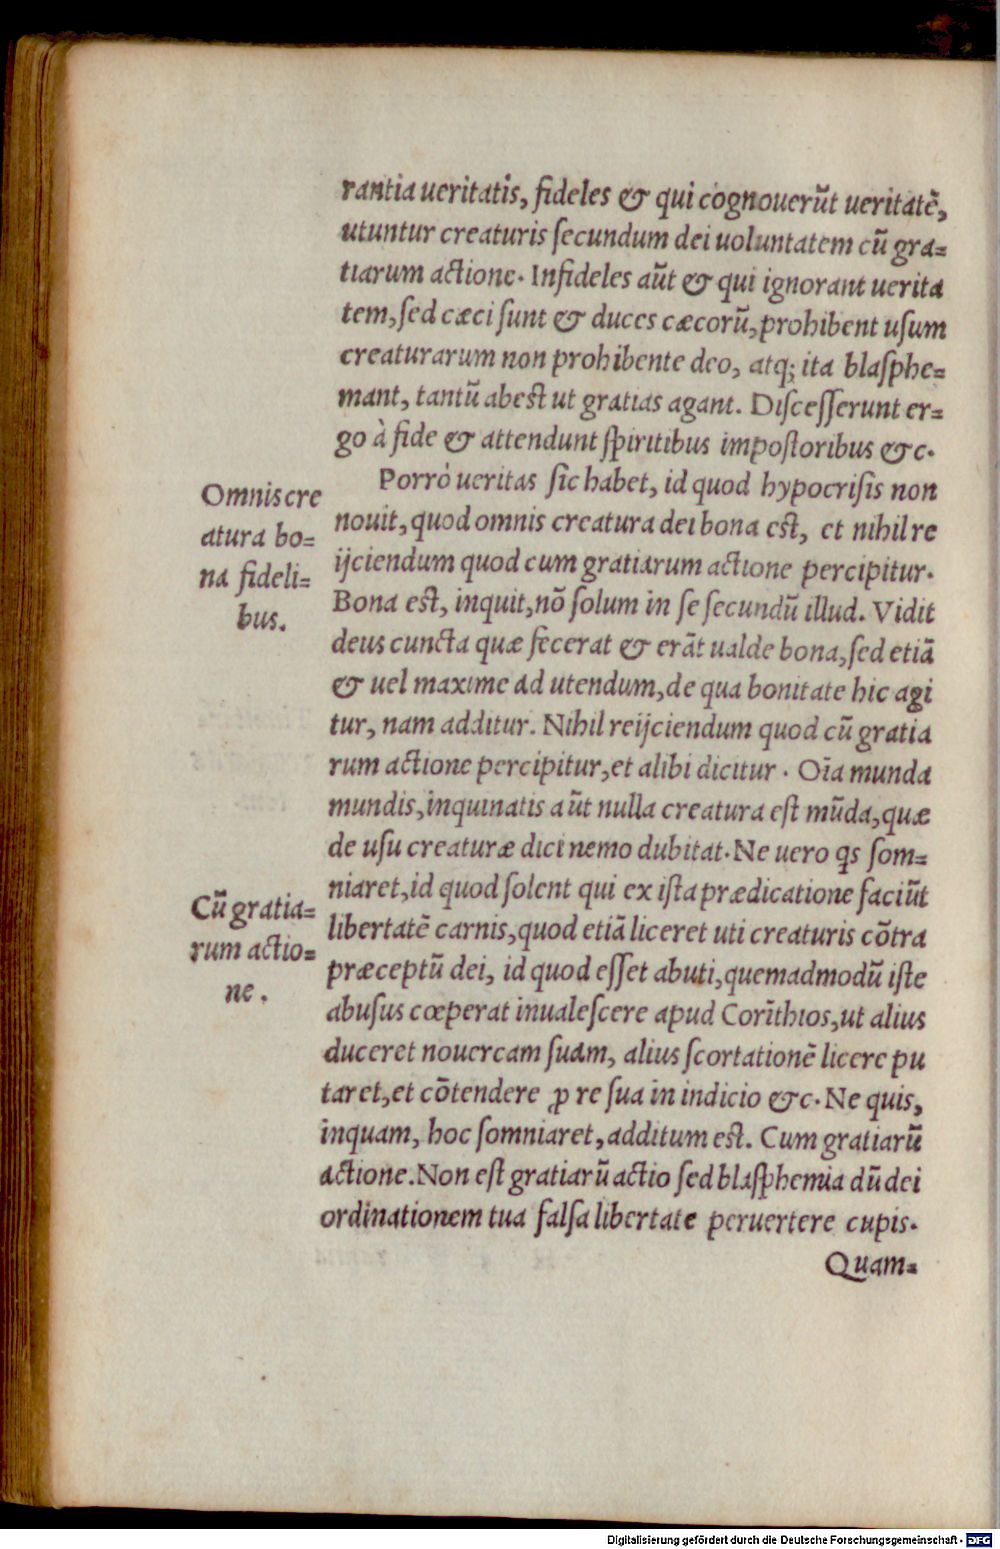 rantia ueritatis, fideles & qui cognouerūt ueritatē,
utuntur creaturis ſecundum dei uoluntatem cū gra=
tiarum actione. Infideles aūt & qui ignorant uerita
tem, ſed cæci ſunt & duces cæcorū, prohibent uſum
creaturarum non prohibente deo, atq; ita blaſphe=
mant, tantū abest ut gratias agant. Diſceſſerunt er=
go à fide & attendunt ſpiritibus impoſtoribus &c.
Omnis cre
atura bo=
na fideli=
bus.
Porrò ueritas ſic habet, id quod hypocriſis non
nouit, quod omnis creatura dei bona est, et nihil re
ijciendum quod cum gratiarum actione percipitur.
Bona est, inquit, nō ſolum in ſe ſecundū illud. Vidit
deus cuncta quæ fecerat & erāt ualde bona, ſed etiā
& uel maxime ad utendum, de qua bonitate hic agi
tur, nam additur. Nihil reijciendum quod cū gratia
rum actione percipitur, et alibi dicitur. Oīa munda
mundis, inquinatis aūt nulla creatura eſt mūda, quæ
de uſu creaturæ dici nemo dubitat. Ne uero qs ſom=
Cū gratia=
rum actio=
ne.
niaret, id quod ſolent qui ex iſta prædicatione faciūt
libertatē carnis, quod etiā liceret uti creaturis cōtra
præceptū dei, id quod eſſet abuti, quemadmodū iſte
abuſus cœperat inualeſcere apud Corīthios, ut alius
duceret nouercam ſuam, alius ſcortationē licere pu
taret, et cōtendere ꝓ re ſua in indicio &c. Ne quis,
inquam, hoc ſomniaret, additum est. Cum gratiarū
actione. Non eſt gratiarū actio ſed blaſphemia dū dei
ordinationem tua falſa libertate peruertere cupis.
Quam=
Digitalisierung gefördert durch die Deutsche Forschungsgemeinschaft - DFG